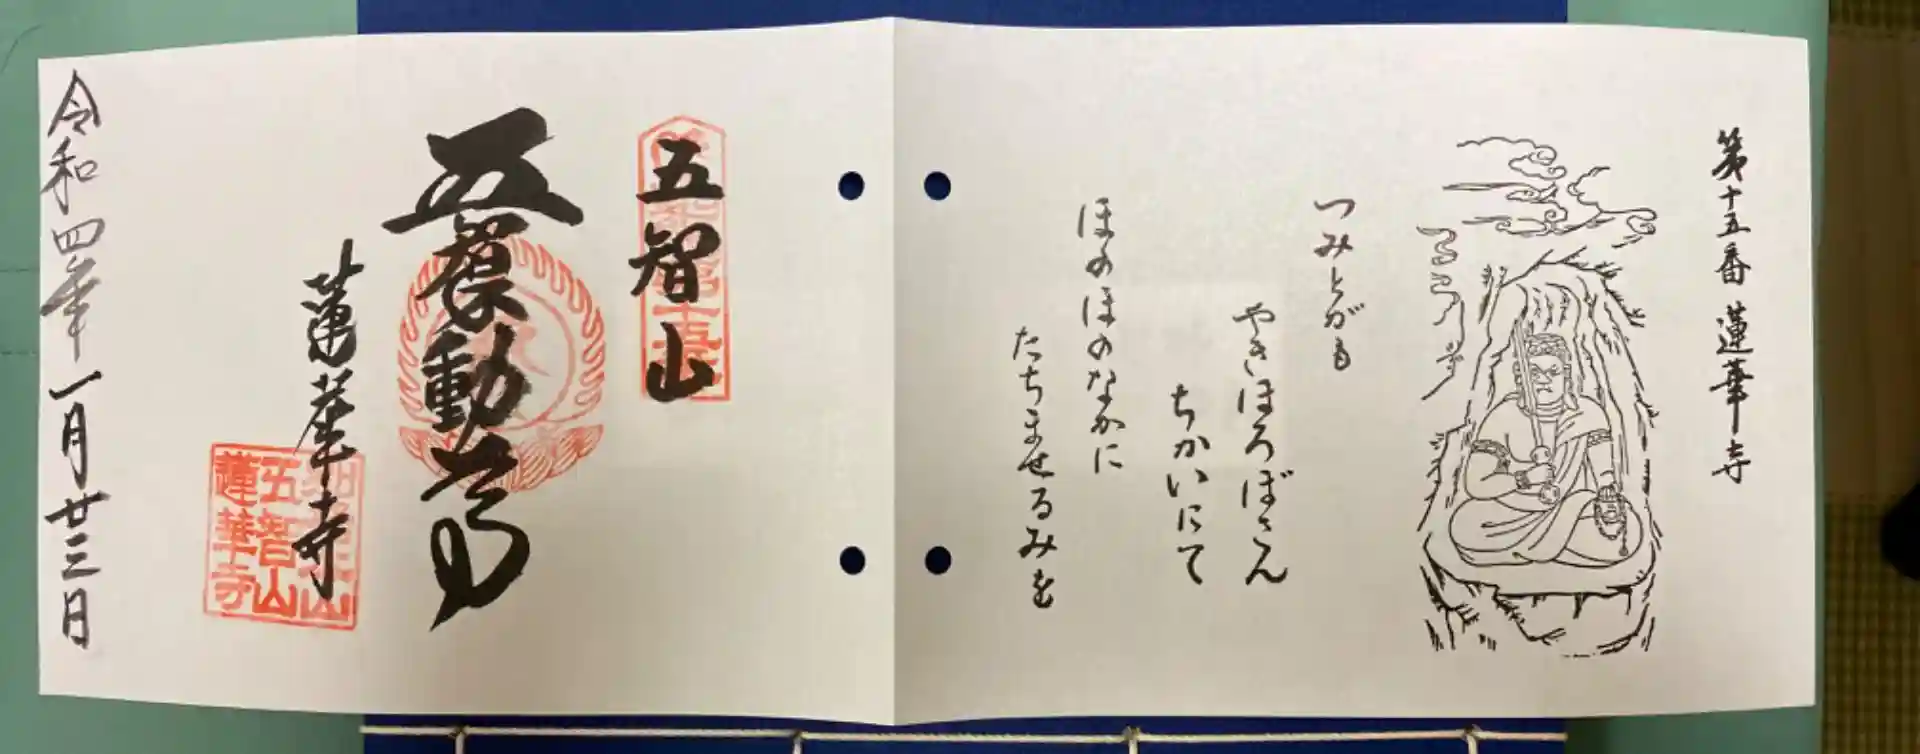 第十五番 蓮華寺
つみとがも
やきほろぼさん
ちかいにて
ほのほのなかに
たちませるみを
五智山
蓮華寺
五智山
蓮華寺
令和四年一月廿三日